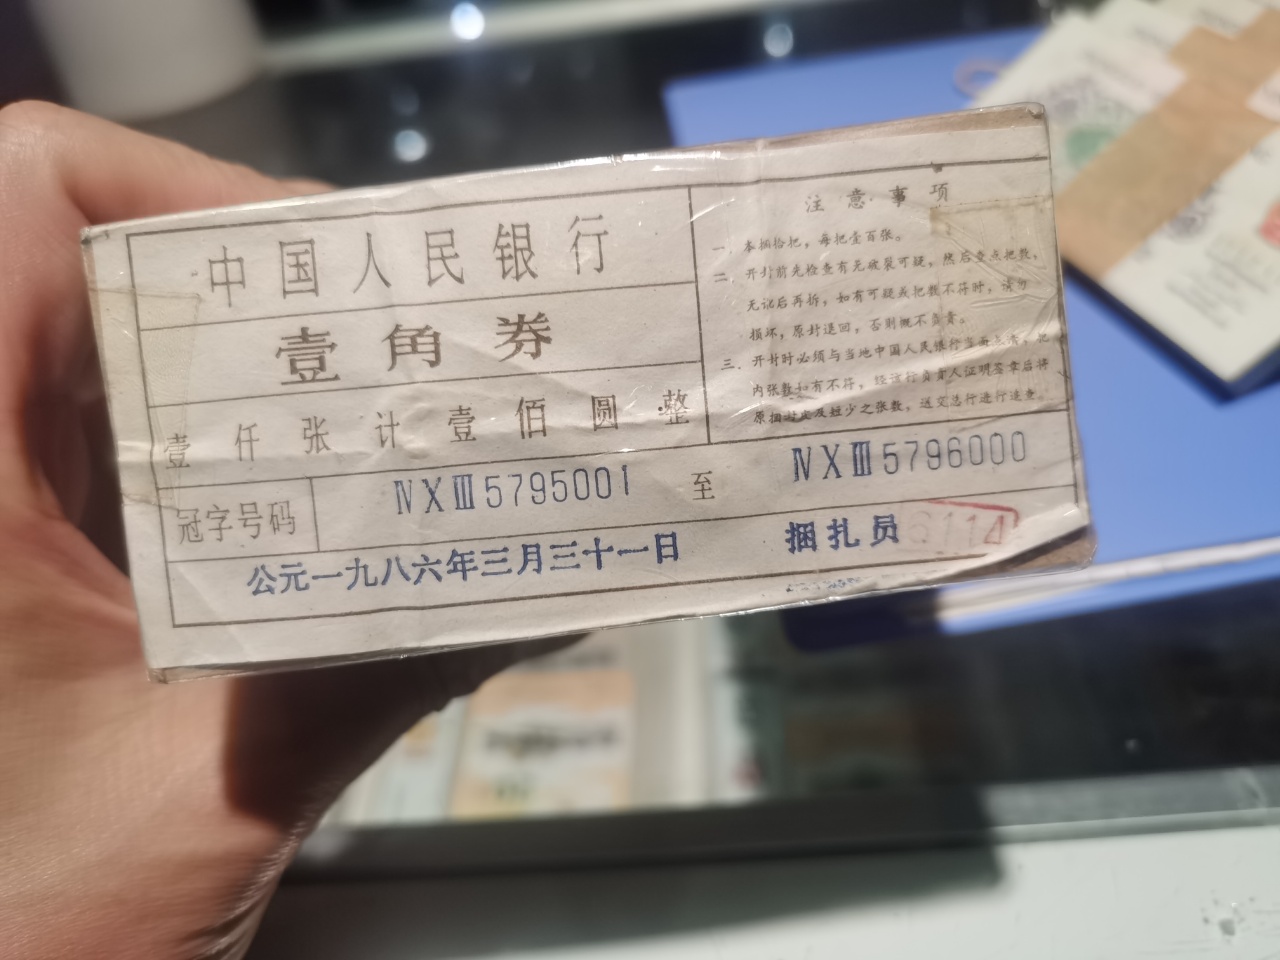 中国人民银行
壹角券
壹仟张计壹佰圆整
冠字号码 ⅣⅩⅢ5795001 至 ⅣⅩⅢ5796000
公元一九八六年三月三十一日 捆扎员 6114
注意事项
一、本捆拾把，每把壹百张。
二、开封前先检查有无破裂可疑，然后查点把数，
无讹后再拆，如有可疑或把数不符时，请勿
损坏，原封退回，否则概不负责。
三、开封时必须与当地中国人民银行当面点清，把
内张数如有不符，经该行负责人证明签章后将
原捆封皮及短少之张数，送交总行进行追查。